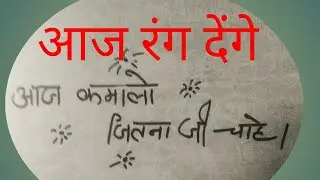 आज रंग देंगे
आज कमालो
जितना जी चाहे।